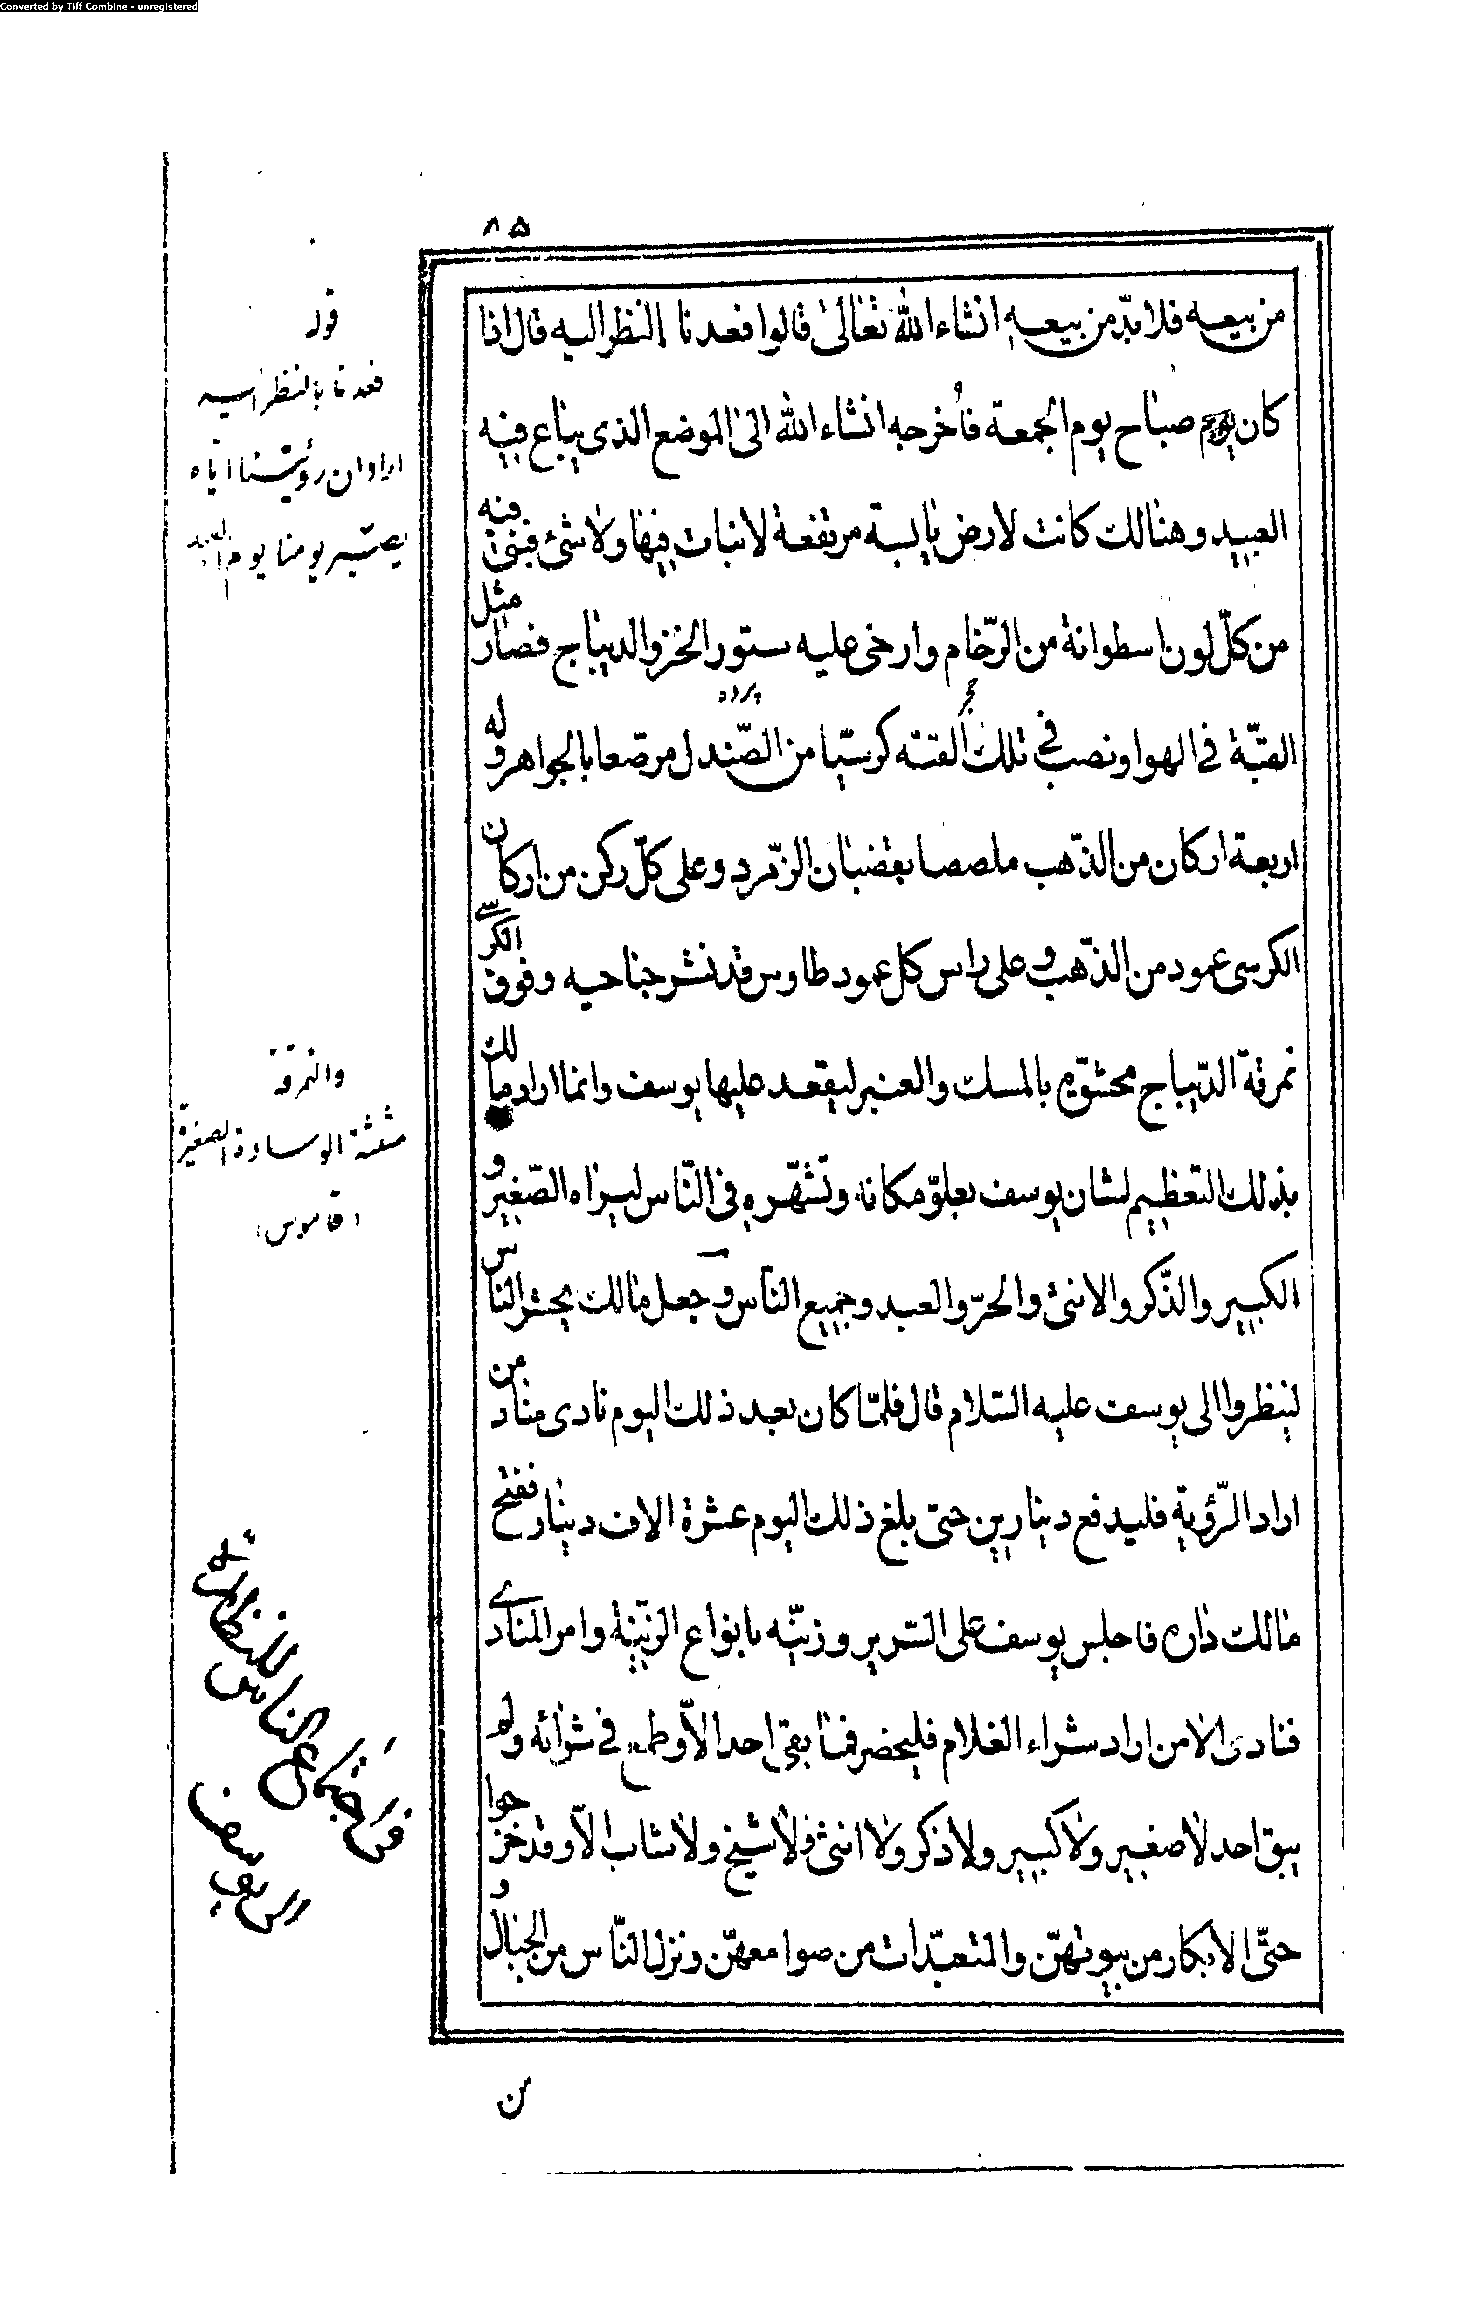 Converted by Tiff Combine - unregistered
۸۵
من بيعه فلا بدّ من بيعه انشاء الله تعالى قالوا فعدنا بالنظر اليه قال اذا
كان يوم صباح يوم الجمعة فأخرجه انشاء الله الى الموضع الذى يباع فيه
العبيد وهنالك كانت لارض يابسة مرتفعة لا نبات فيها ولا شئ فبنى فيه
من كلّ لون اسطوانة من الرّخام وارخى عليه ستور الخز والديباج فصار مثل
القبّة فى الهوا ونصب فى تلك القبّه كرسيّا من الصّندل مرصّعا بالجواهر وله
اربعة اركان من الذّهب ملصصا بقضبان الزّمرد وعلى كلّ ركن من اركان
الكرسى عمود من الذّهب وعلى راس كل عمود طاوس قد نشر جناحيه وفوق الكرسے
نمرقة الدّيباج محشوّه بالمسك والعنبر ليقعد عليها يوسف وانما اراد مالك
بذلك التعظيم لشان يوسف بعلوّ مكانه وتشهّره فى النّاس ليراه الصّغير و
الكبير والذّكر والانثى والحرّ والعبد وجميع النّاس وجعل مالك يحشر الناس
لينظروا الى يوسف عليه السّلام قال فلمّا كان بعد ذلك اليوم نادى مناد من
اراد الرّؤية فليدفع دينارين حتى بلغ ذلك اليوم عشرة الاف دينار ففتح
مالك داره فاجلس يوسف على السّرير وزيّنه بانواع الزّينة وامر المنادے
فنادى الا من اراد شراء الغلام فليحضر فما بقى احد الاّ وطمع فى شرائه ولم
يبق احد لا صغير ولا كبير ولا ذكر ولا انثى ولا شيخ ولا شاب الاّ وقد خرجوا
حتّى الابكار من بيوتهنّ والمتعبّدات من صوامعهنّ ونزل النّاس من الجبال و
قوله
فعدنا بالنظر اليه
اراد ان رؤيتنا اياه
يصير يومنا يوم العيد
والنمرقة
مثلثة الوسادة الصغيرة
(قاموس)
فى اجتماع الناس للنظارة
الى يوسف
من